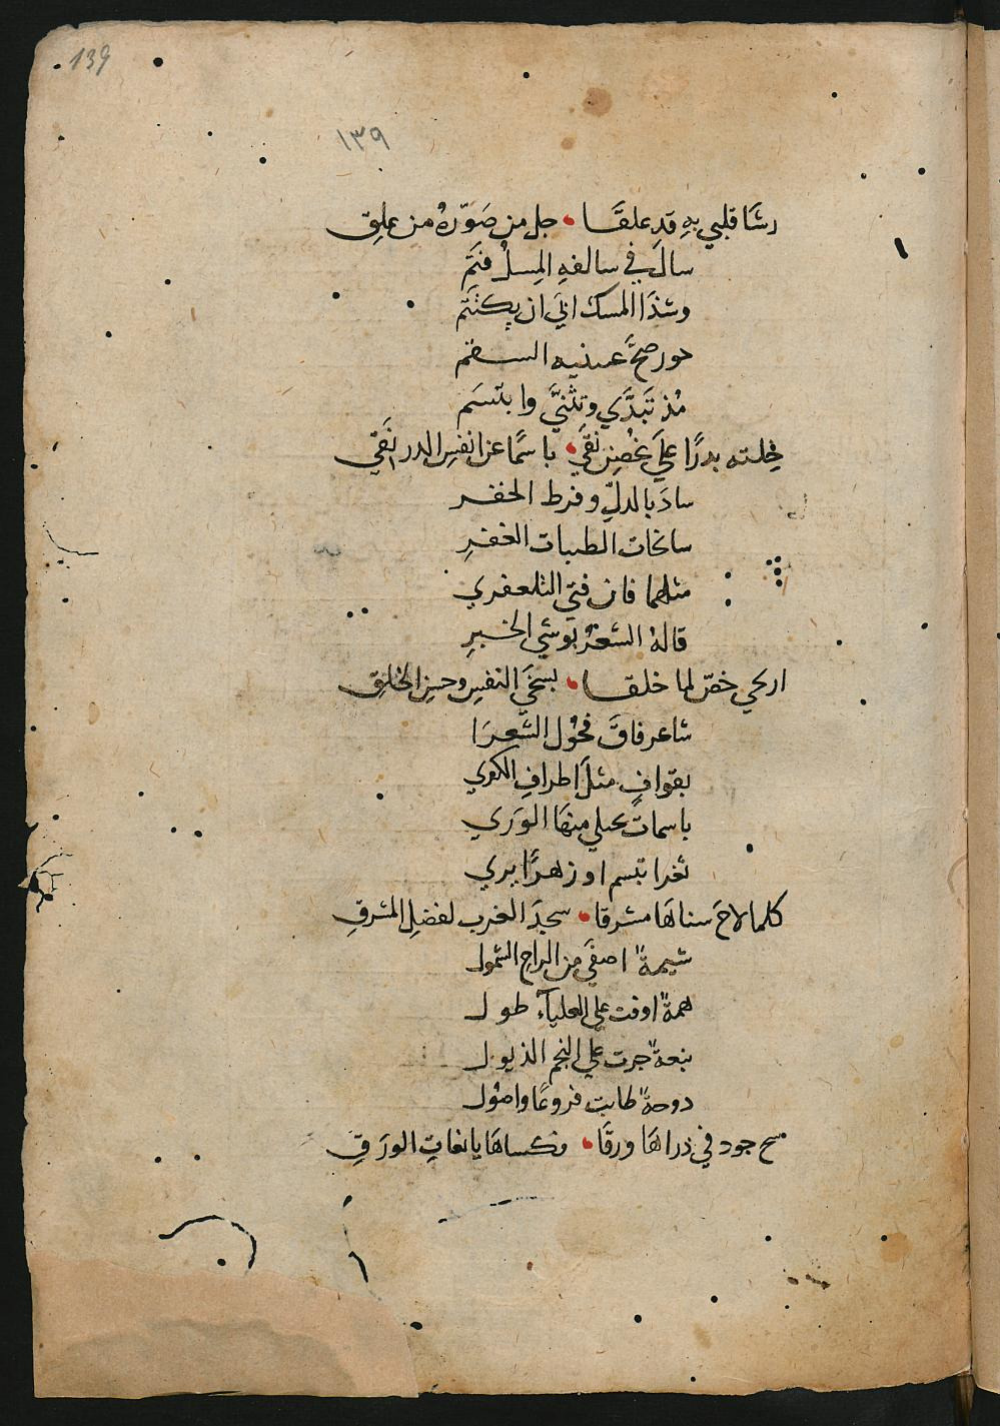 139
١٣٩
رشَا قلبي بهِ قدِ علقَا • جل من صَوّرهُ من علِق
سالَ في سالفهِ المِسكُ فنَمَّ
وشذَا المسك ابَي ان يكتتَم
حور صحَّ عىنيه السقم
مُذ تبَدَّي وتثنيَّ وابتسَم
خِلته بدرًا علَي غصُنِ نقَي • باسمًا عن انفسِ الدر نَقي
سادَ بالدلِّ وفرط الخفر
سانحات الظبيات العفرِ
مثلما فاق فتي التلعفري
قالهُ الشعرُ بوشي الحبرِ
اريحي خصّ لما خلقا • بسخَيِّ النفسِ وحسنِ الخلقِ
شاعر فاقَ فحُول الشعرَا
بقوافٍ مثلَ اطرافِ الكري
باسماتٌ يجلي منهَا الورَي
ثغرا تبسم او زهرًا يري
كلما لاحَ سناهَا مشرقا • سجدَ الغرب لفضلِ المشرقِ
شيمةٌ اصفَي من الراحِ الشمول
همةٌ اوفت علي العلياَءِ طول
نبعةٌ جرت علي النجم الذيول
دوحةٌ طابت فروعًا واصُول
سح جود في ذراهَا ورقَا • فكساهَا يانعاتِ الورَقِ